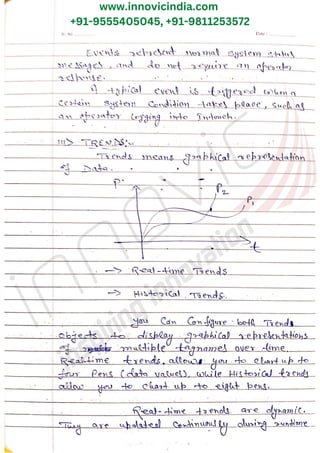 www.innovicindia.com
+91-9555405045, +91-9811253572
Date:
Events represent normal system status
messages, and do not require an operator
response.
A typical event is triggered when a
certain system condition takes place, such as
an operator logging into Intouch.
iii) TRENDS:-
Trends means graphical representation
of Data.
P
P2
P1
t
→ Real-time Trends
→ Historical Trends.
You Can Configure both Trends
objects to display graphical representations
of multiple tagnames over time.
Real-time trends, allows you to chart up to
four Pens (data values), while Historical trends
allow you to chart up to eight pens.
Real-time trends are dynamic.
They are updated continuously during runtime
innovic
inspiring innovation